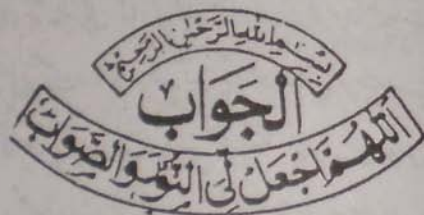 بِسْمِ اللهِ الرَّحْمٰنِ الرَّحِيْمِ
اَلْجَوَاب
اَللّٰهُمَّ اجْعَلْ لِی النُّوْرَ وَالصَّوَابَ